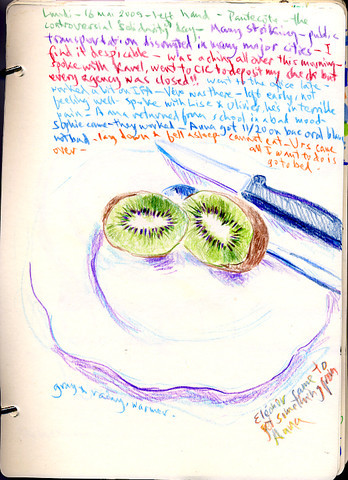 Lundi - 16 mai 2005 - left hand - Pentecôte - the
controversial Solidarity Day - Many striking - public
transportation disrupted in many major cities - I
find it despicable - was aching all over this morning -
spoke with Karel, went to CIC to deposit my checks but
every agency was closed!! went to the office late -
worked a bit on IFA - was there - left early, not
feeling well - spoke with Lise & Olivier he's in terrible
pain - Anna returned from school in a bad mood -
Sophie came - they worked - Anna got 11/20 on bac oral blanc
not bad - lay down & fell asleep - cannot eat - Urs came
over - all I want to do is
go to bed.
gray & rainy, warmer.
Eleonor came to
get something from
Anna